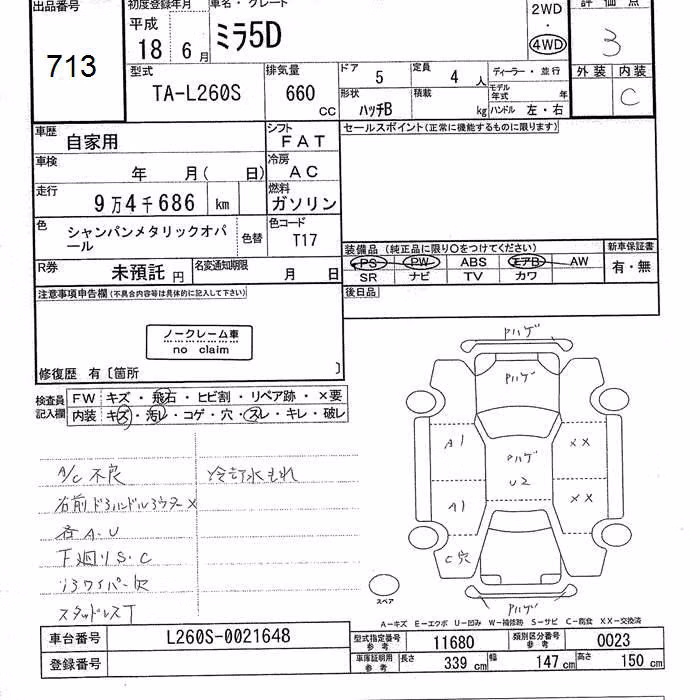 出品番号
713
初度登録年月
平成
18 6月
車名・グレード
ミラ5D
2WD
・
4WD
評価点
3
型式
TA-L260S
排気量
660
CC
ドア 5
定員 4人
形状 ハッチB
積載 kg
ディーラー・並行
モデル年式 年
ハンドル 左・右
外装 内装
C
車歴 自家用
シフト FAT
セールスポイント(正常に機能するものに限ります)
車検 年 月( 日)
冷房 AC
走行 9万4千686 km
燃料 ガソリン
色 シャンパンメタリックオパール
色替
色コード T17
装備品(純正品に限り○をつけてください)
新車保証書
PS PW ABS エアB AW
SR ナビ TV カワ
有・無
R券 未預託 円
名変通知期限 月 日
後日品
注意事項申告欄(不具合内容等は具体的に記入して下さい)
ノークレーム車
no claim
修復歴 有〔箇所 〕
検査員記入欄
FW キズ・飛石・ヒビ割・リペア跡・×要
内装 キズ・汚レ・コゲ・穴・スレ・キレ・破レ
A/C 不良
冷却水もれ
右前ドアハンドルアウター×
各A.U
下廻りS.C
リアワイパー欠
スタッドレスT
Pハゲ
Pハゲ
A1
××
Pハゲ
U2
A1
××
C穴
Pハゲ
スペア
A-キズ E-エクボ U-凹み W-補修跡 S-サビ C-腐食 XX-交換済
車台番号 L260S-0021648
登録番号
型式指定番号 参考 11680
類別区分番号 参考 0023
車庫証明用 参考
長さ 339cm
幅 147cm
高さ 150cm